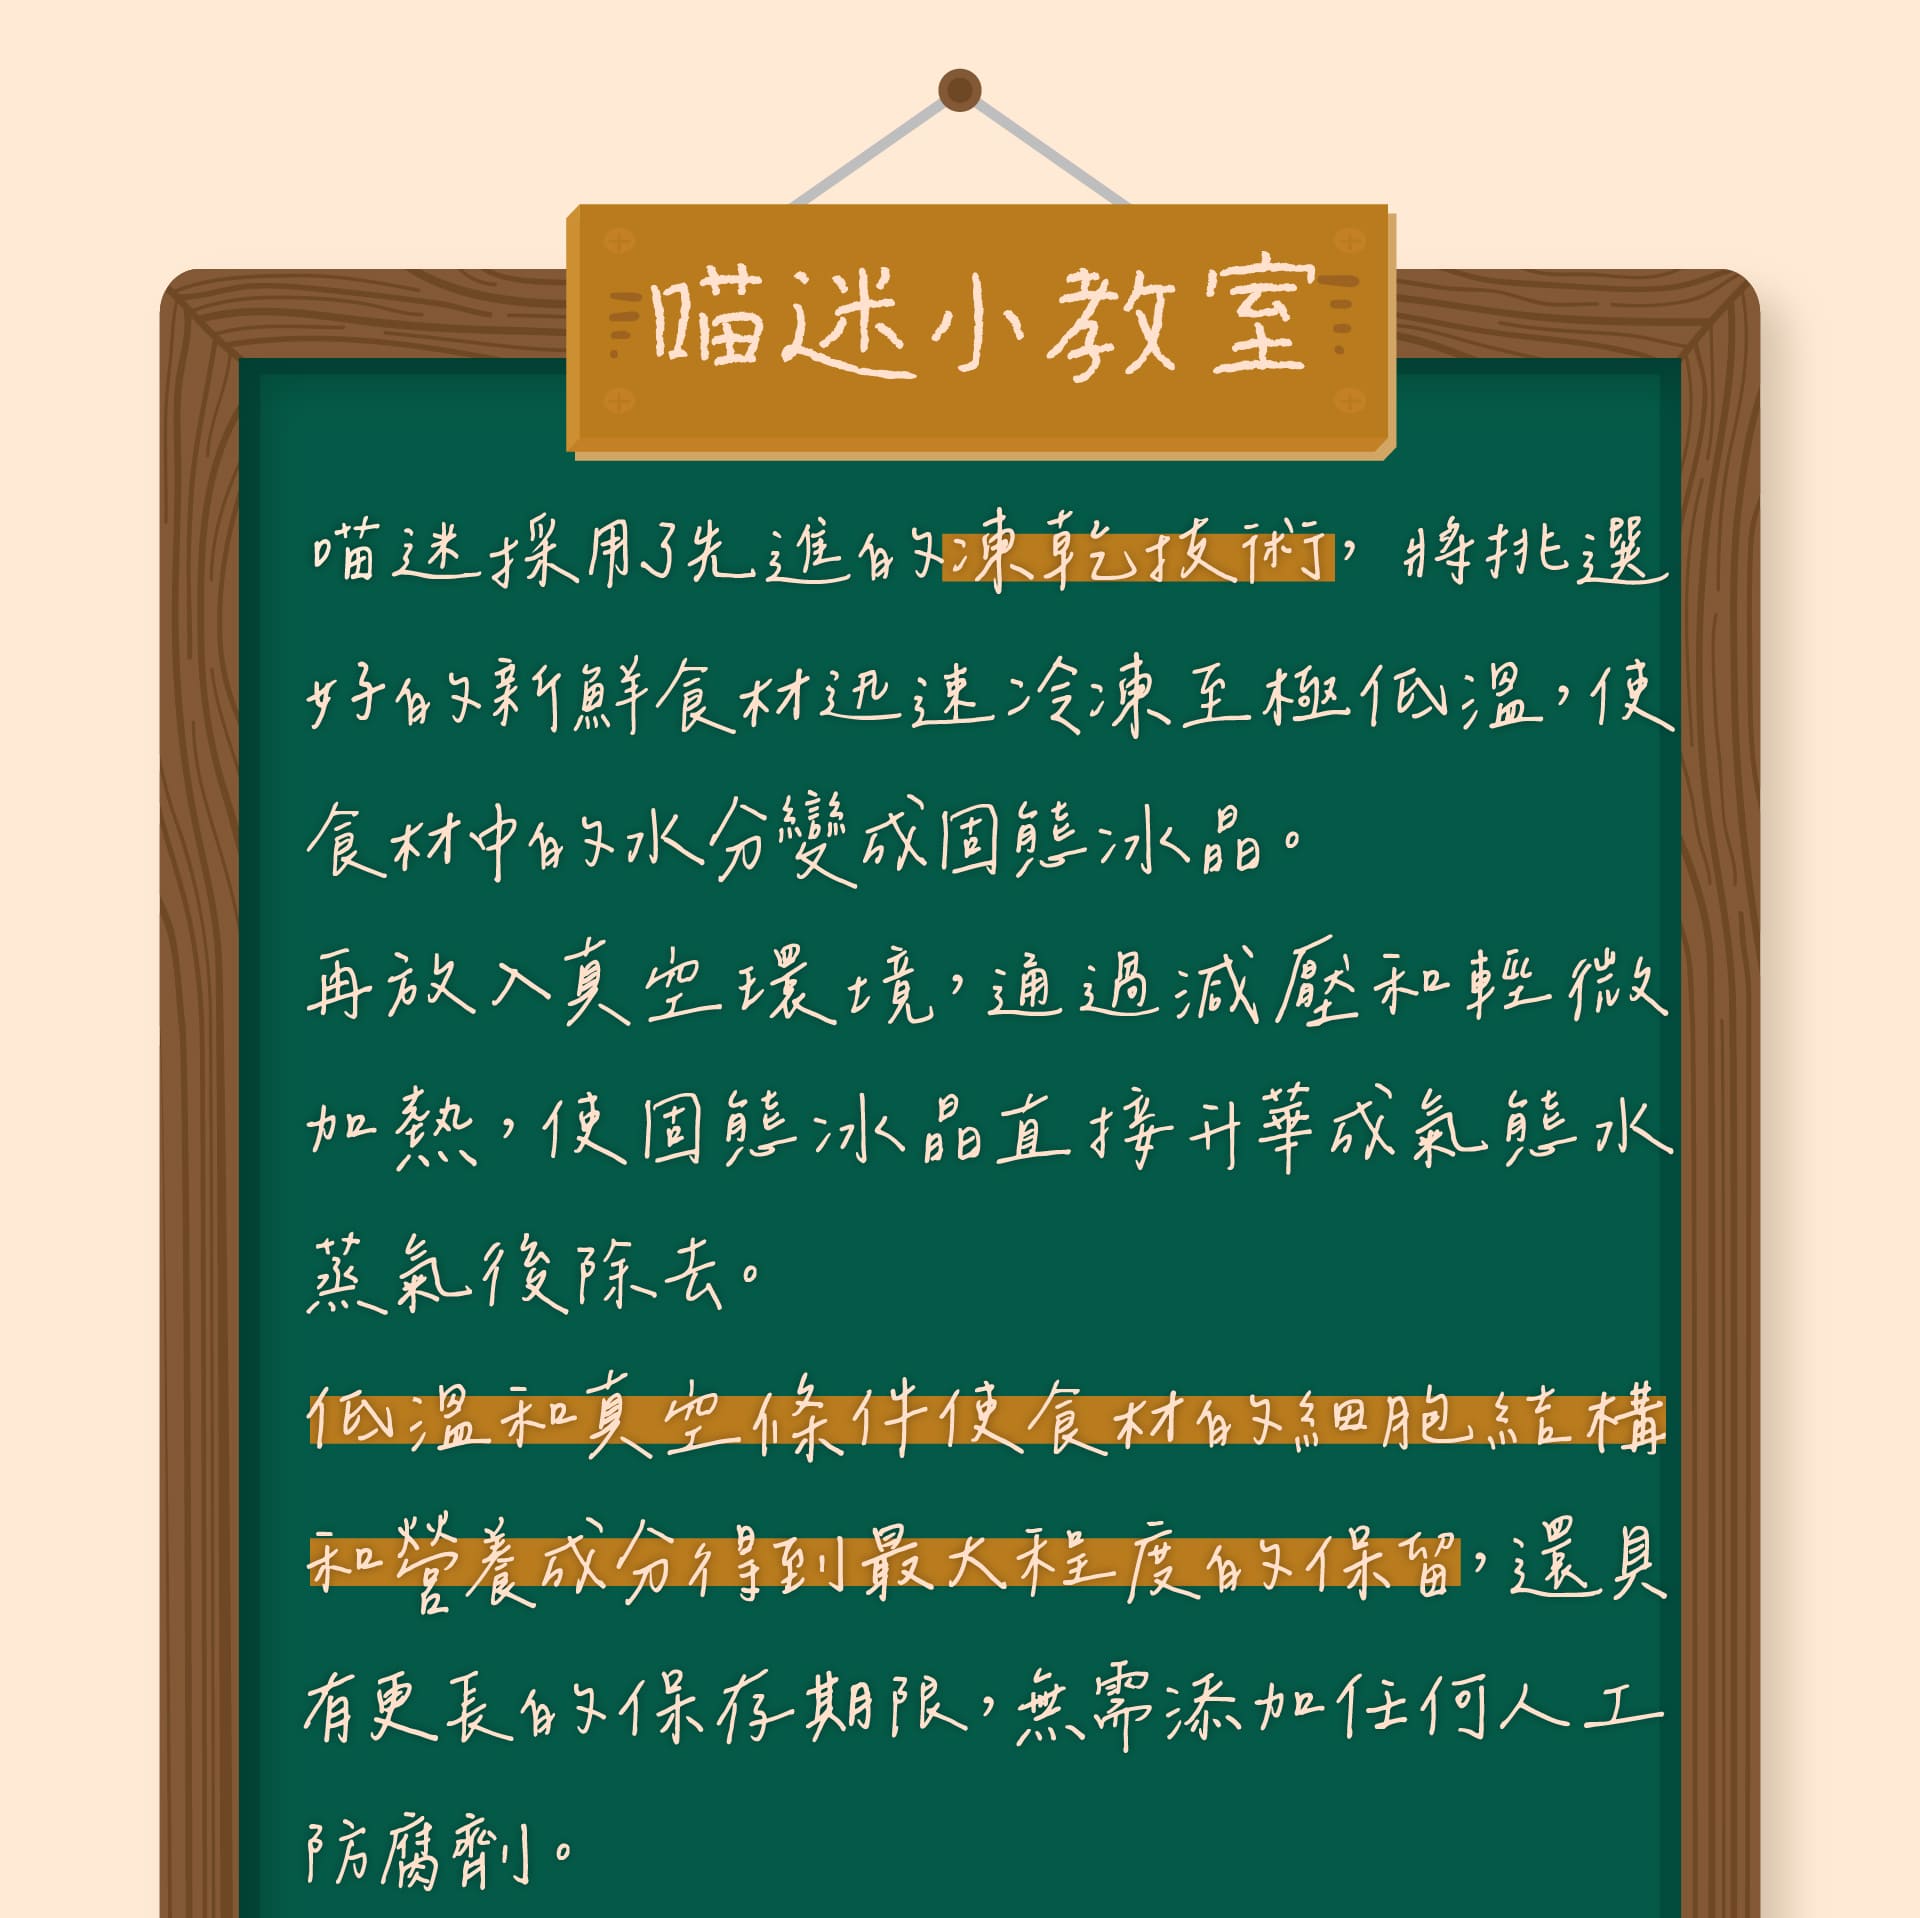 喵迷小教室
喵迷採用了先進的凍乾技術，將挑選
好的新鮮食材迅速冷凍至極低溫，使
食材中的水分變成固態冰晶。
再放入真空環境，通過減壓和輕微
加熱，使固態冰晶直接升華成氣態水
蒸氣後除去。
低溫和真空條件使食材的細胞結構
和營養成分得到最大程度的保留，還具
有更長的保存期限，無需添加任何人工
防腐劑。